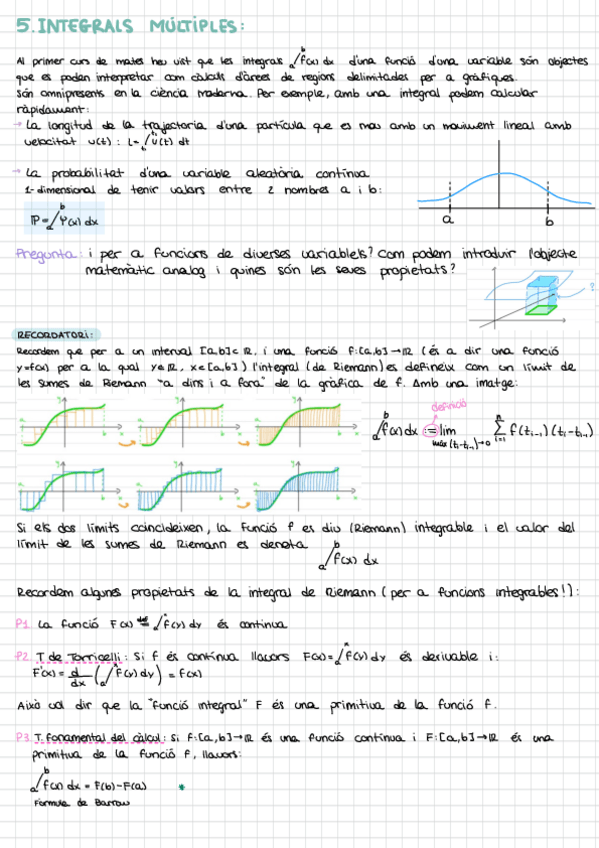 5. INTEGRALS MÚLTIPLES:
Al primer curs de mates heu vist que les integrals ₐ∫ᵇ f(x) dx d'una funció d'una variable són objectes
que es poden interpretar com càlculs d'àrees de regions delimitades per a gràfiques.
Són omnipresents en la ciència moderna. Per exemple, amb una integral podem calcular
ràpidament:
→ La longitud de la trajectoria d'una partícula que es mou amb un moviment lineal amb
velocitat v(t) : L = ∫ v(t) dt
→ La probabilitat d'una variable aleatòria contínua
1-dimensional de tenir valors entre 2 nombres a i b:
P = ₐ∫ᵇ φ(x) dx
a b
Pregunta: i per a funcions de diverses variables? Com podem introduir l'objecte
matemàtic anàleg i quines són les seves propietats?
RECORDATORI:
Recordem que per a un interval [a,b] ⊂ ℝ, i una funció f:[a,b]→ℝ (és a dir una funció
y=f(x) per a la qual y∈ℝ, x∈[a,b]) l'integral (de Riemann) es defineix com un límit de
les sumes de Riemann "a dins i a fora" de la gràfica de f. Amb una imatge:
definició
ₐ∫ᵇ f(x) dx := lim Σ f(tᵢ₋₁)(tᵢ-tᵢ₋₁)
màx(tᵢ-tᵢ₋₁)→0 i=1
Si els dos límits coincideixen, la funció f es diu (Riemann) integrable i el valor del
límit de les sumes de Riemann es denota
ₐ∫ᵇ f(x) dx
Recordem algunes propietats de la integral de Riemann (per a funcions integrables!):
P1. La funció F(x) def= ₐ∫ˣ f(y) dy és contínua
P2. T. de Torricelli: Si f és contínua llavors F(x) = ₐ∫ˣ f(y) dy és derivable i:
F'(x) = d/dx (ₐ∫ˣ f(y) dy) = f(x)
Això vol dir que la "funció integral" F és una primitiva de la funció f.
P3. T. fonamental del càlcul: Si f:[a,b]→ℝ és una funció contínua i F:[a,b]→ℝ és una
primitiva de la funció f, llavors:
ₐ∫ᵇ f(x) dx = F(b)-F(a) *
Fórmula de Barrow